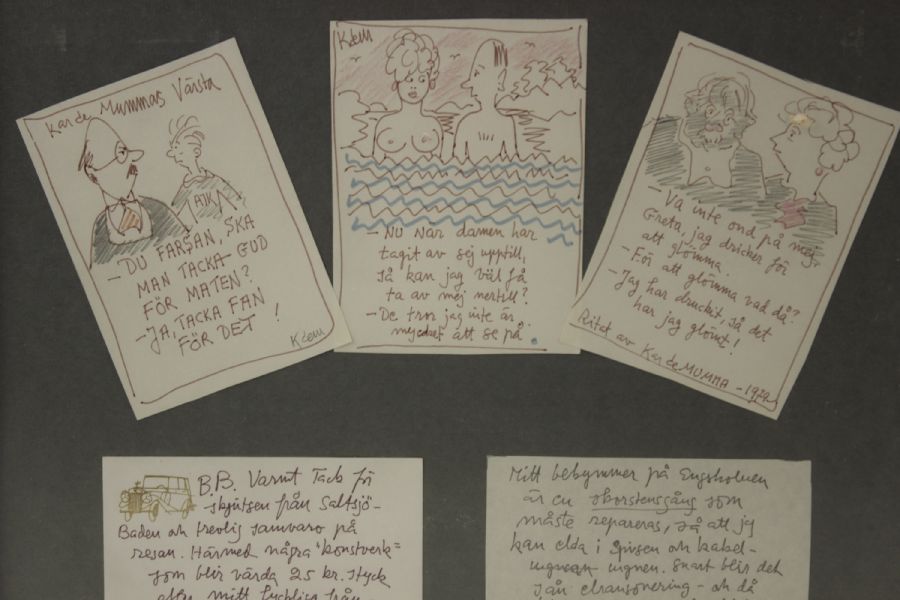 Kar de Mummas Värsta
AJK
- DU FARSAN, SKA
MAN TACKA GUD
FÖR MATEN?
- JA, TACKA FAN
FÖR DET!
Kdem
Kdem
- Nu när damen har
tagit av sej upptill,
så kan jag väl få
ta av mej nertill?
- De tror jag inte är
mycket att se på.
- Va inte ond på mej
Greta, jag dricker för
att glömma.
- För att glömma vad då?
- Jag har druckit, så det
har jag glömt!
Ritat av Kar de MUMMA - 1972
B.B. Varmt Tack för
skjutsen från Saltsjö-
Baden och trevlig samvaro på
resan. Härmed några "konstverk"
som blir värda 25 kr. styck
efter mitt lyckliga från-
Mitt bekymmer på Engsholmen
är en skorstensgång som
måste repareras, så att jag
kan elda i spisen och kakel-
ugnen. Snart blir det
elransonering - och då